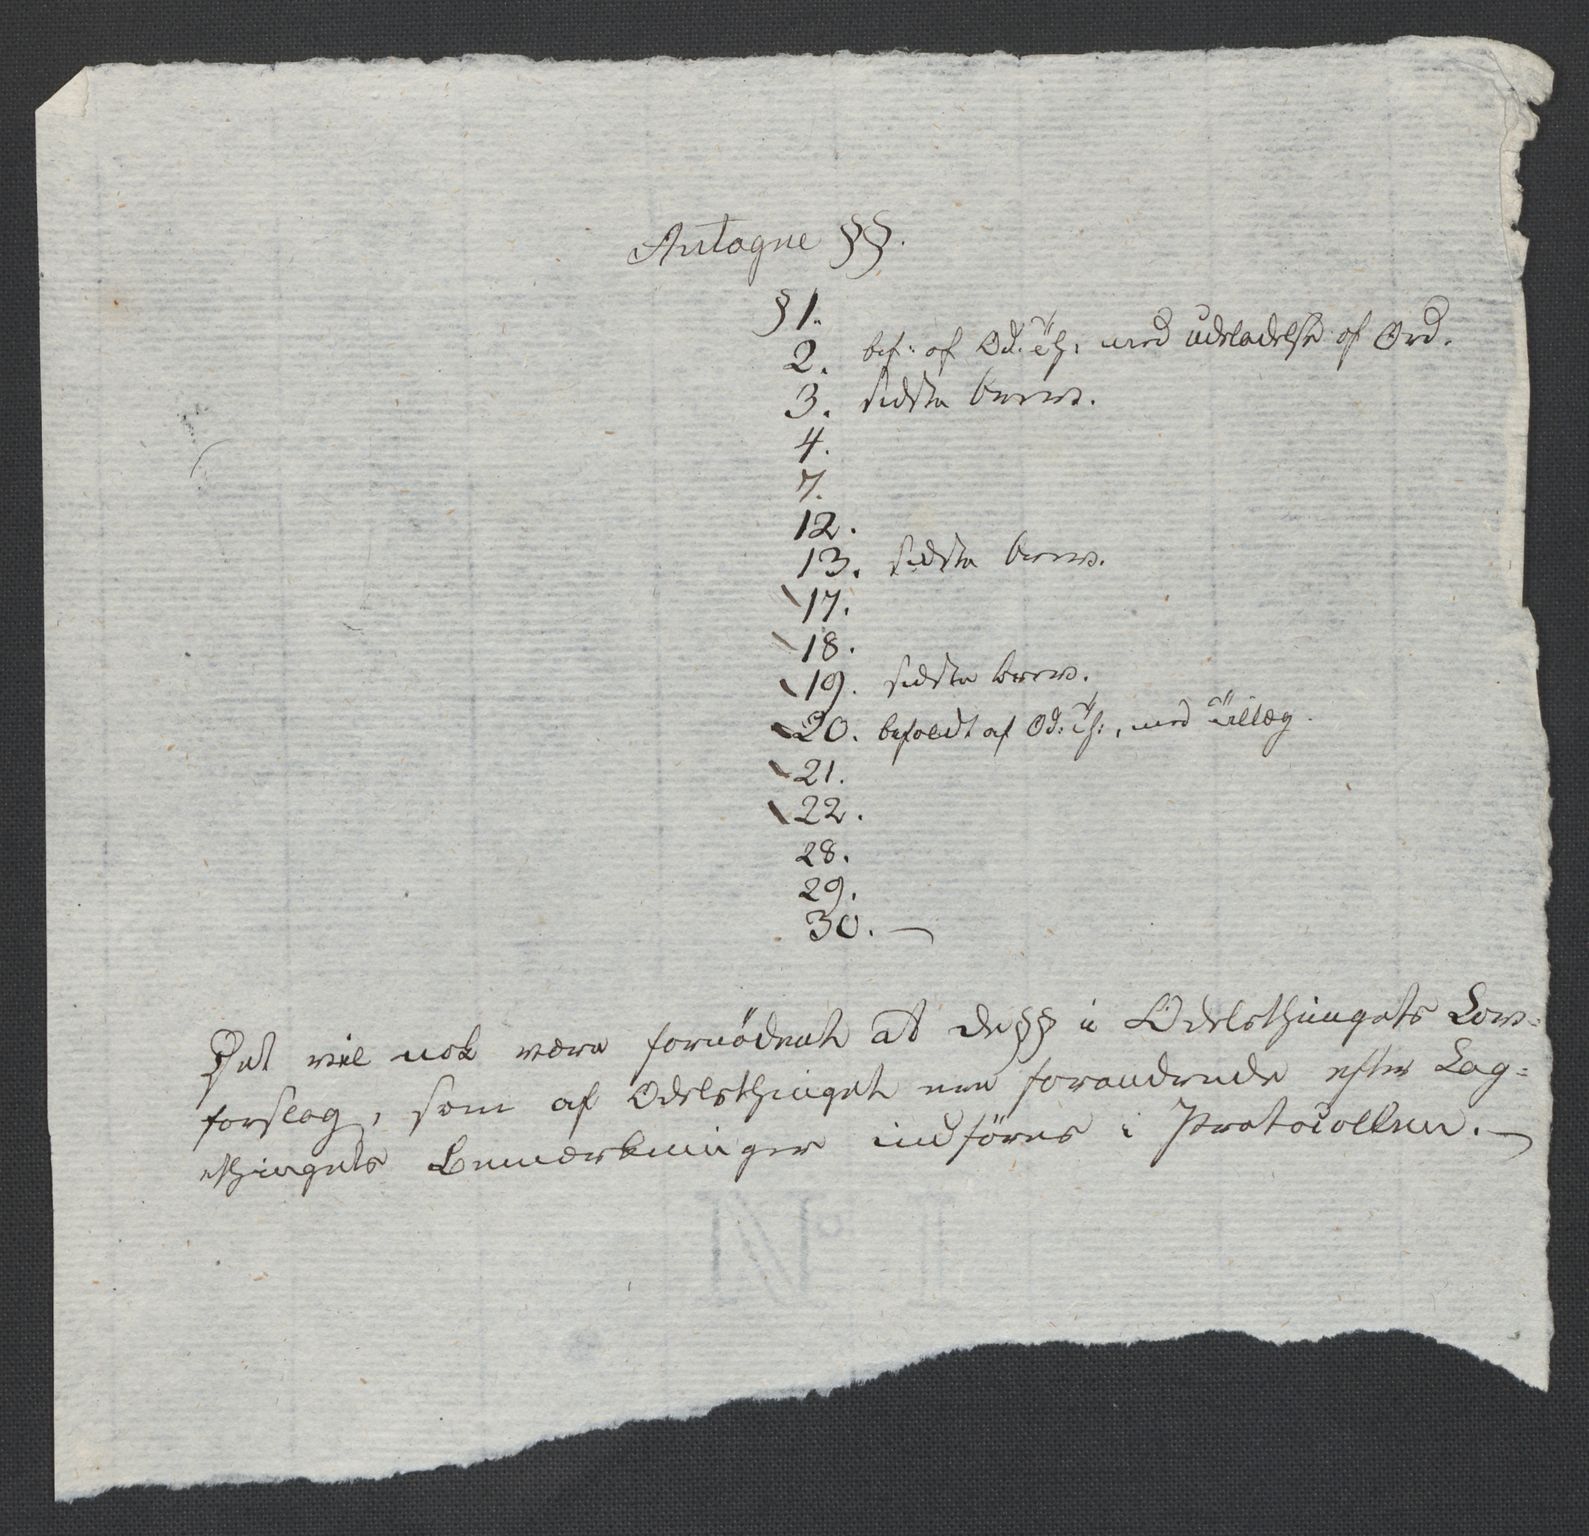 Antagne §§.
§ 1.
2. bef: af Od: Th: med Udeladelse af Ord.
3. sidste
4.
7.
12.
13. sidste
17.
18.
19. sidste
20. befoldt af Od: Th:, med Tillæg.
21.
22.
28.
29.
30. —
Det viel nok være fornödent at de §§ i Odelsthingets Lov=
forslag, som af Odelsthinget ere forandrede efter Lag=
thingets Bemærkninger indföres i Protocollen. —